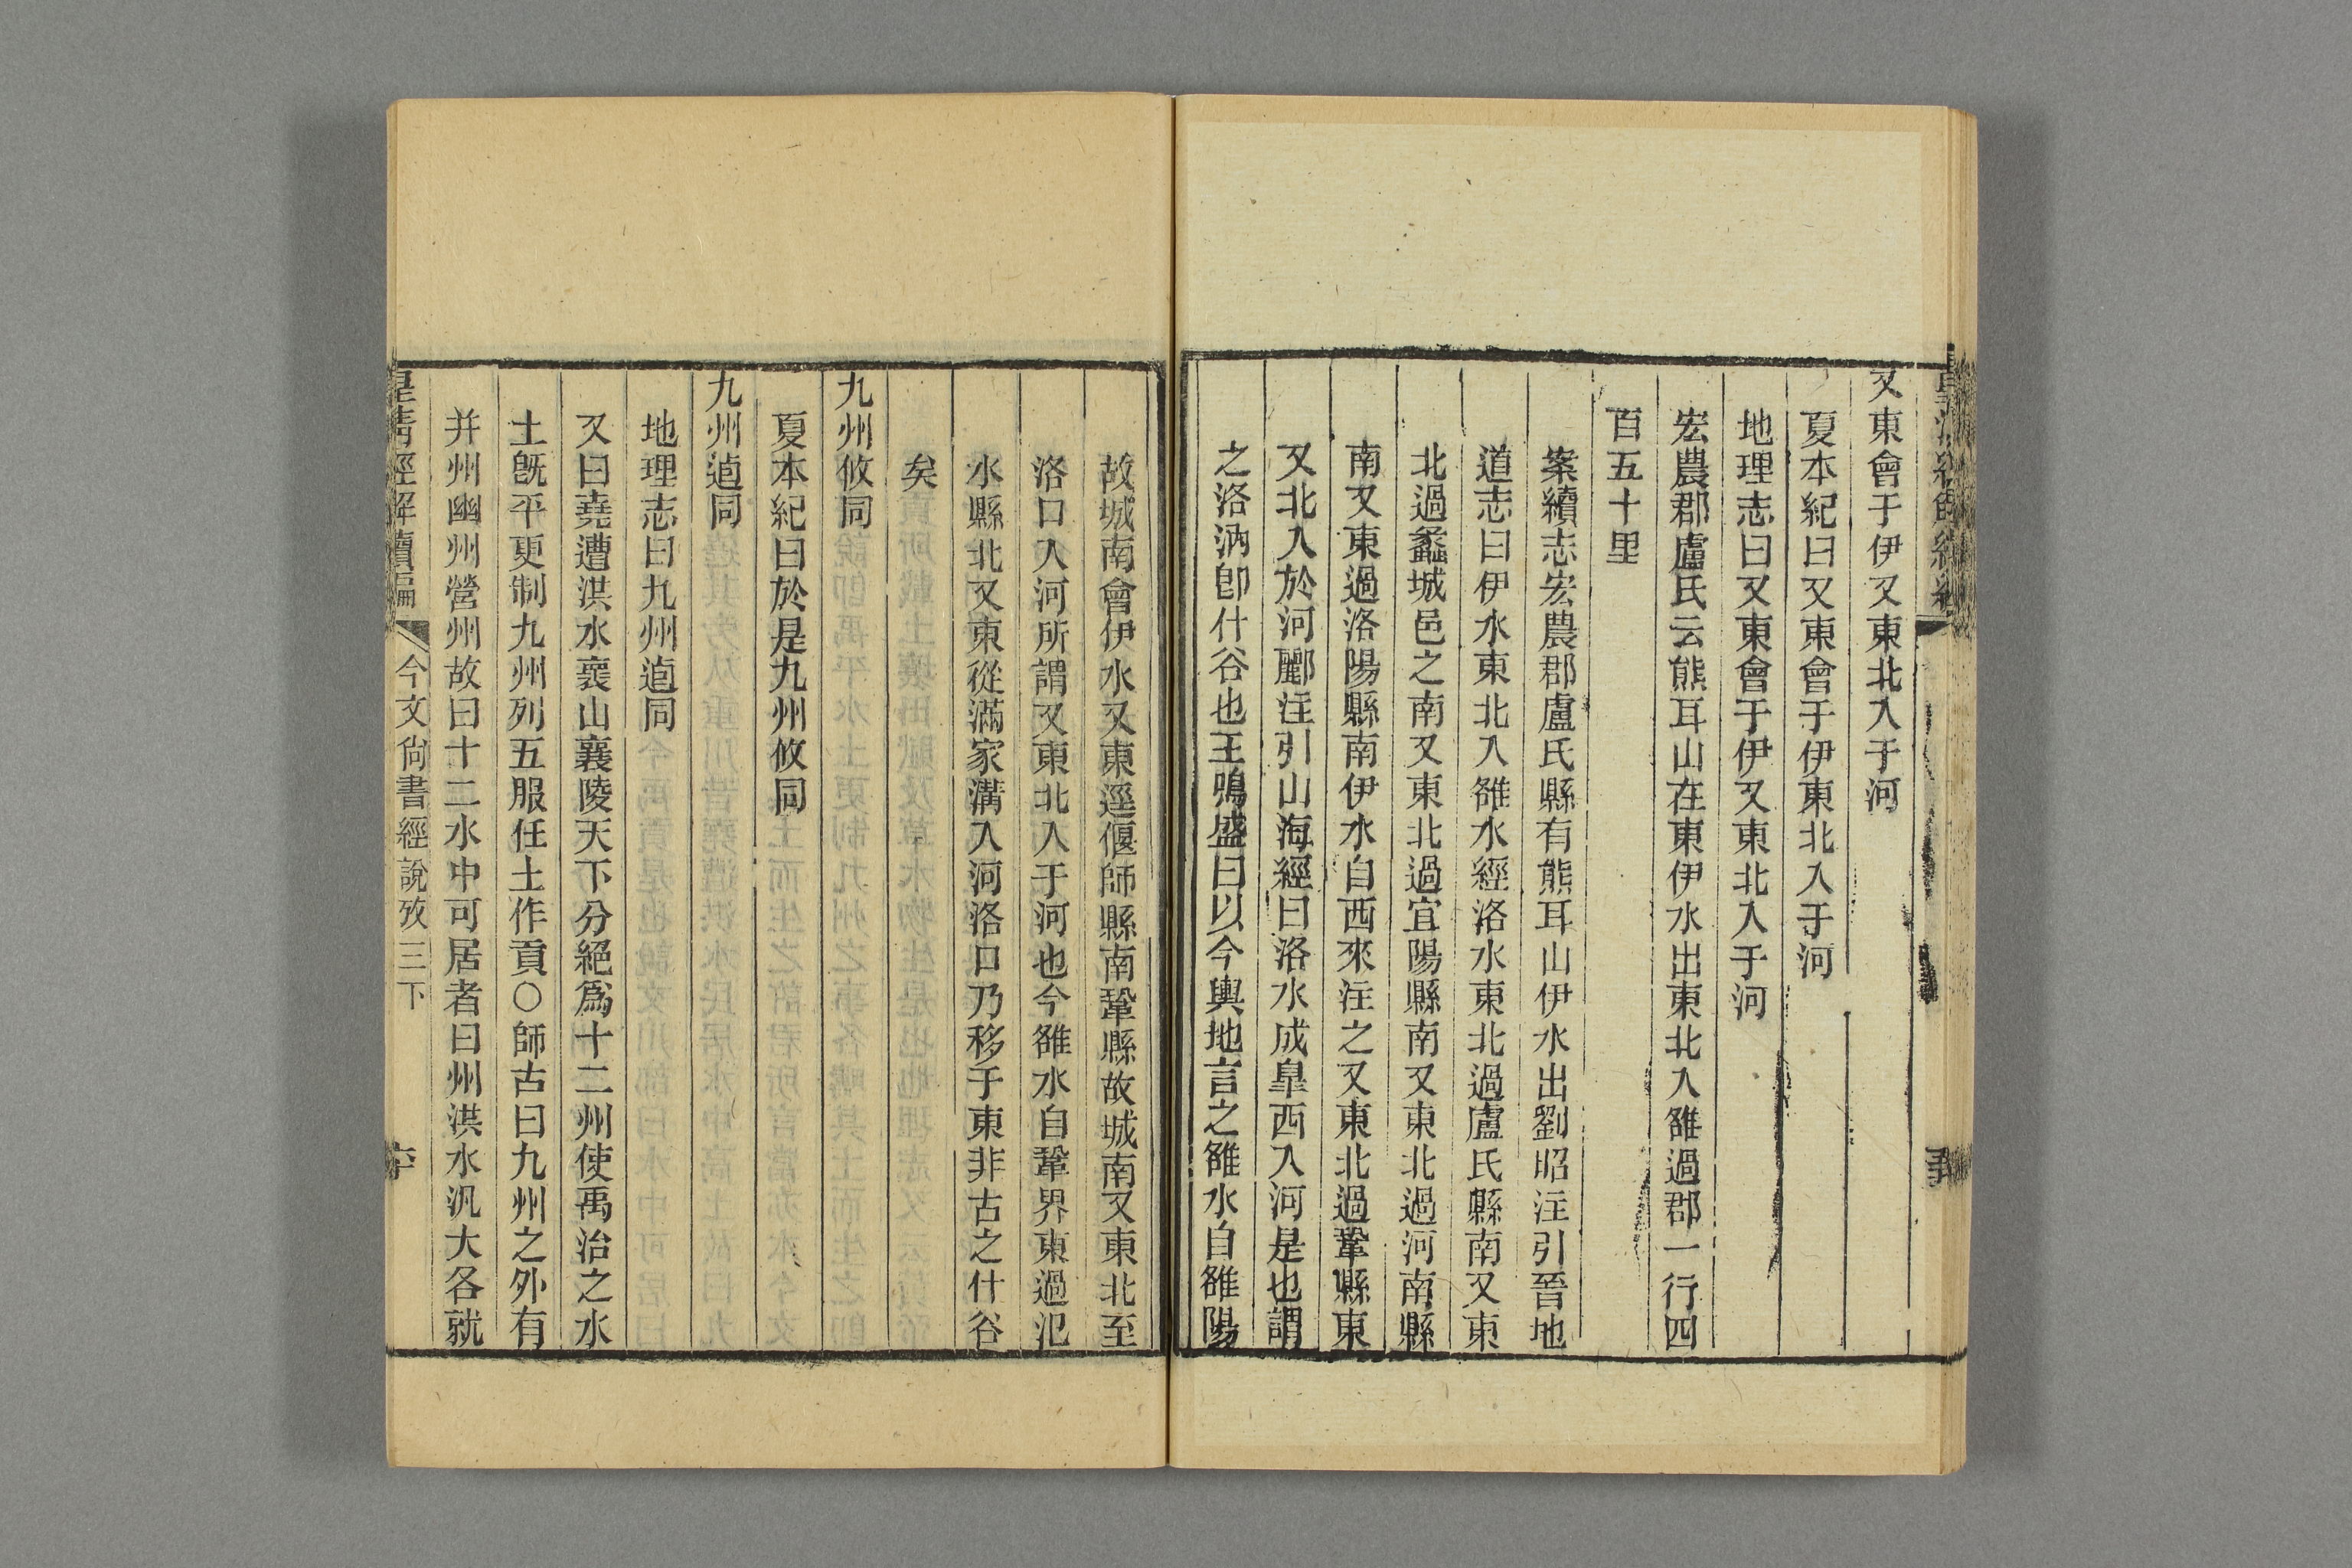 又東會于伊又東北入于河
夏本紀曰又東會于伊東北入于河
地理志曰又東會于伊又東北入于河
宏農郡盧氏云熊耳山在東伊水出東北入雒過郡一行四
百五十里
案續志宏農郡盧氏縣有熊耳山伊水出劉昭注引晉地
道志曰伊水東北入雒水經洛水東北過盧氏縣南又東
北過蠡城邑之南又東北過宜陽縣南又東北過河南縣
南又東過洛陽縣南伊水自西來注之又東北過鞏縣東
又北入於河酈注引山海經曰洛水成臯西入河是也謂
之洛汭卽什谷也王鳴盛曰以今輿地言之雒水自雒陽
故城南會伊水又東逕偃師縣南鞏縣故城南又東北至
洛口入河所謂又東北入于河也今雒水自鞏界東過汜
水縣北又東從滿家溝入河洛口乃移于東非古之什谷
矣
九州攸同
夏本紀曰於是九州攸同
九州逌同
地理志曰九州逌同
又曰堯遭洪水褱山襄陵天下分絕爲十二州使禹治之水
土旣平更制九州列五服任土作貢○師古曰九州之外有
并州幽州營州故曰十二水中可居者曰州洪水汎大各就
皇清經解續編
今文尙書經說攷三下